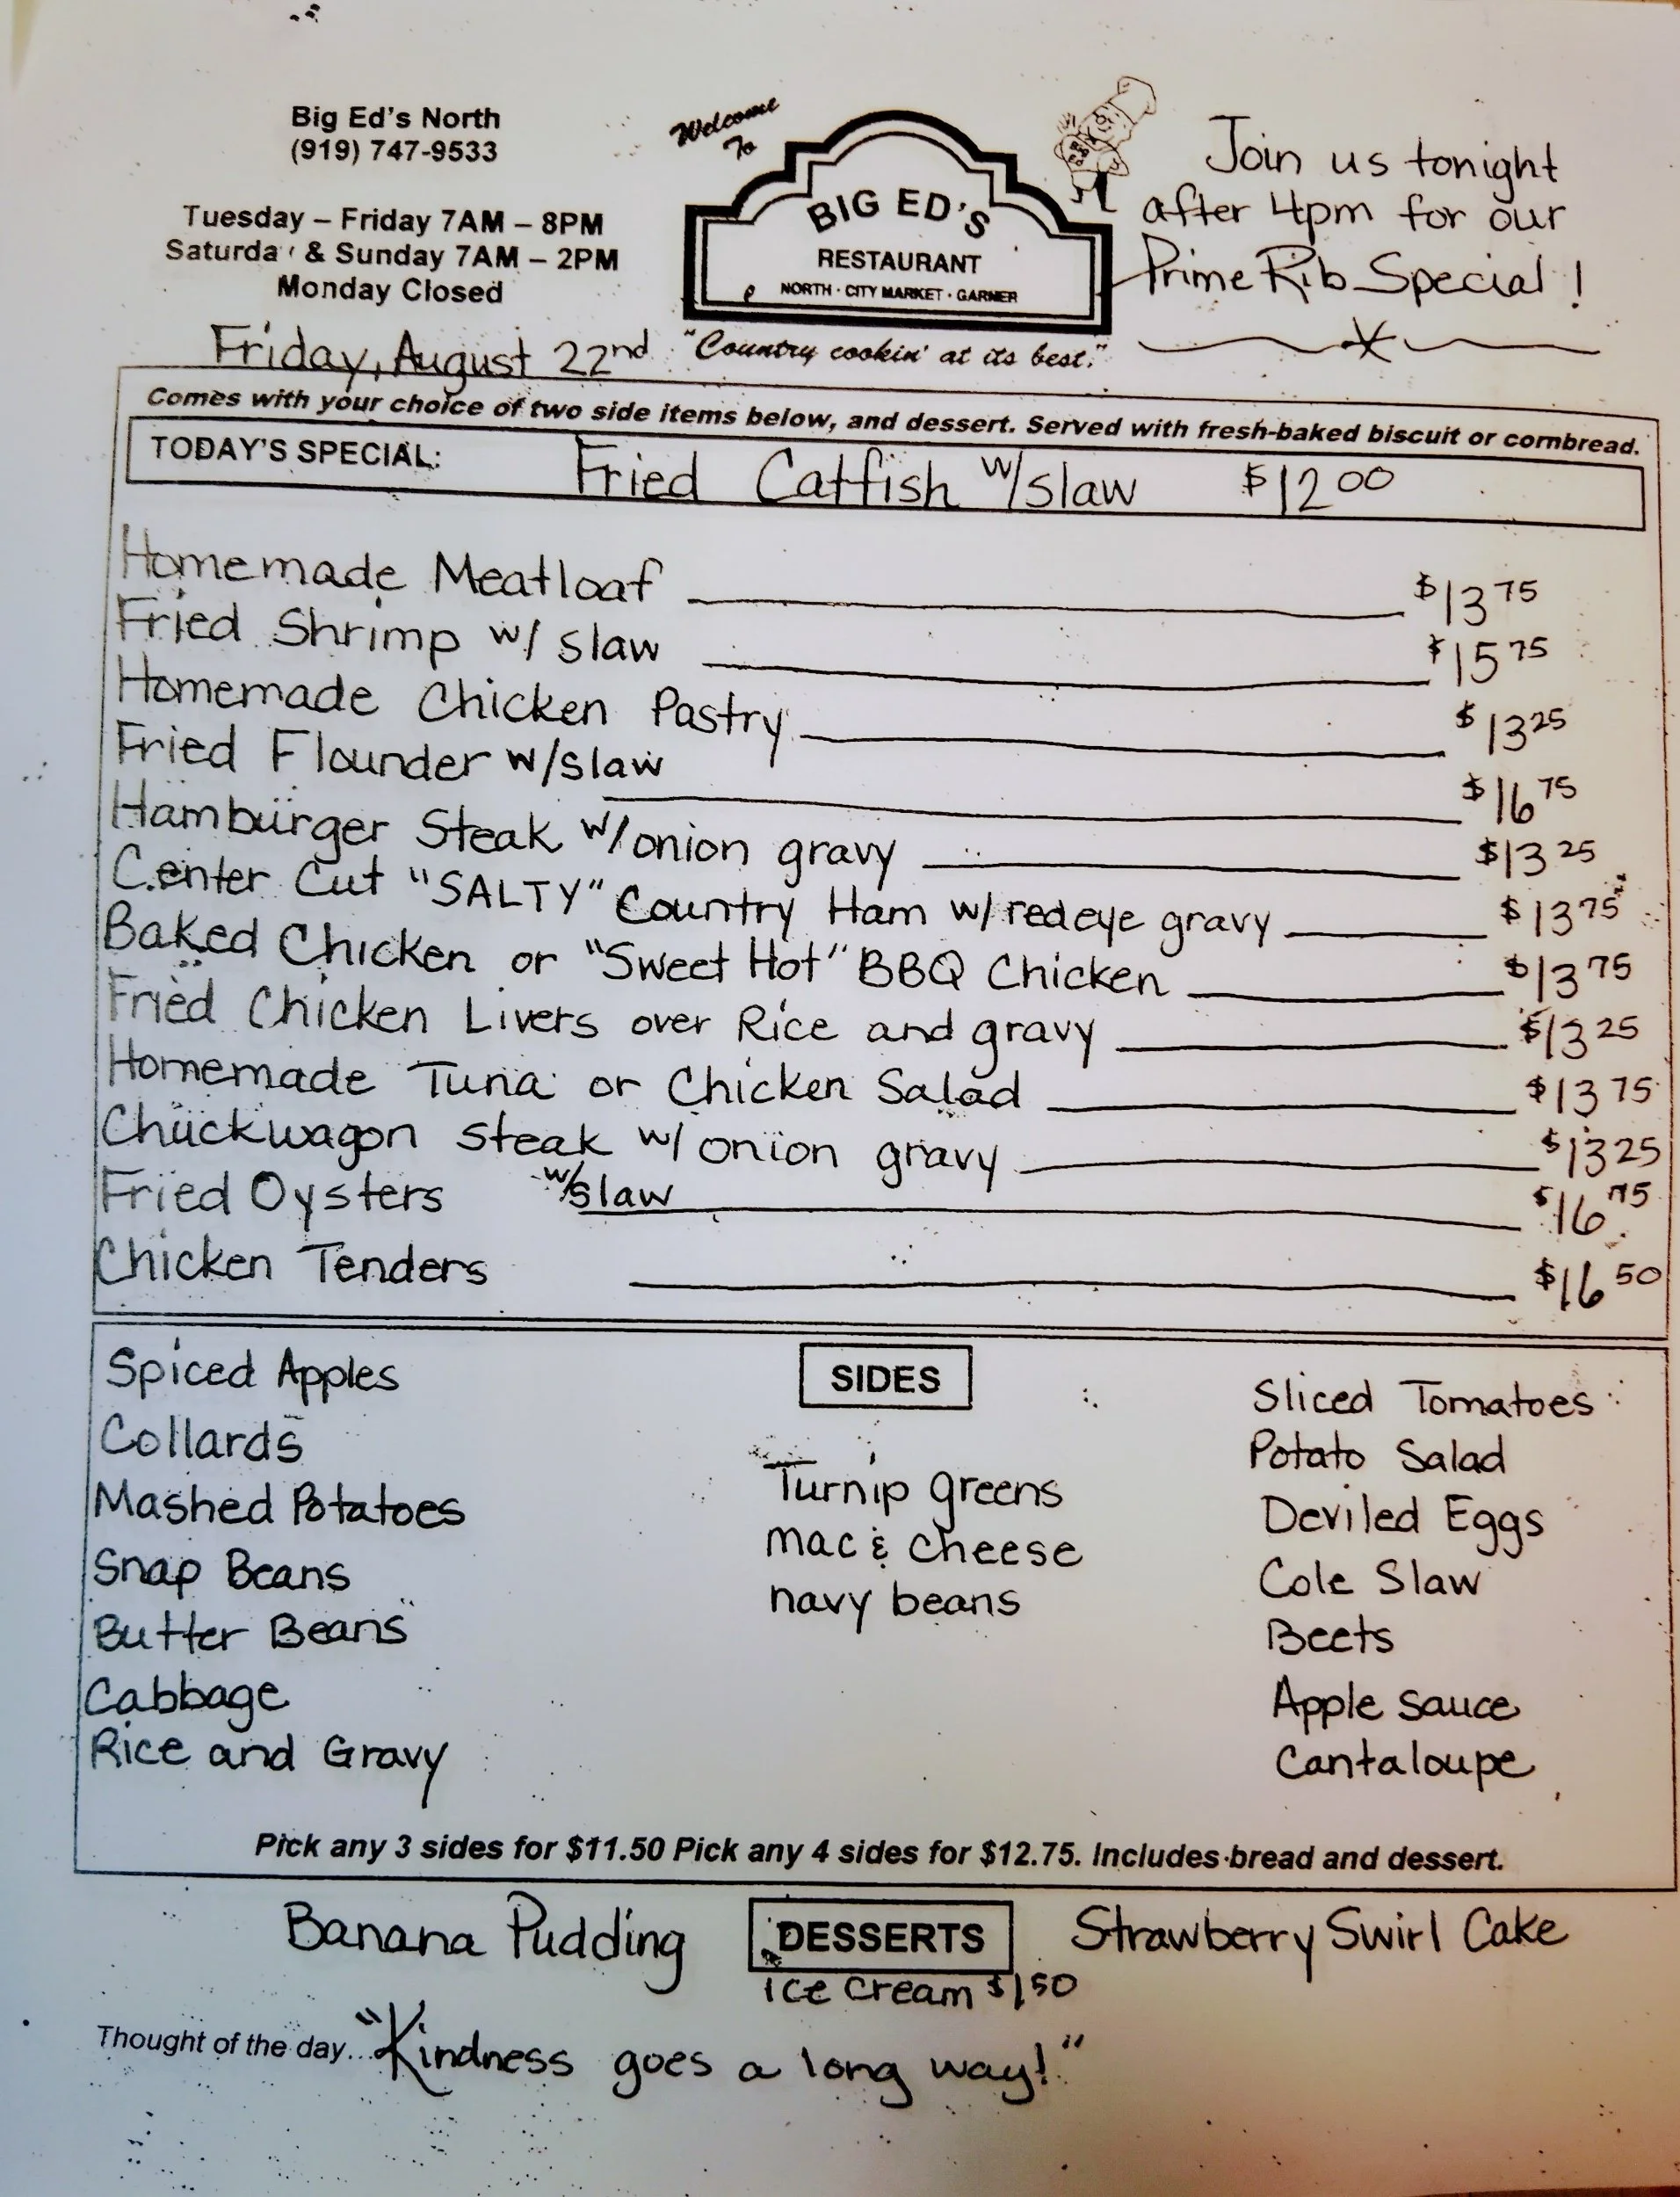 Big Ed's North
(919) 747-9533
Tuesday – Friday 7AM – 8PM
Saturda & Sunday 7AM – 2PM
Monday Closed
Friday, August 22nd
Welcome
To
BIG ED'S
RESTAURANT
NORTH · CITY MARKET · GARNER
"Country cookin' at its best."
Join us tonight
after 4pm for our
Prime Rib Special!
Comes with your choice of two side items below, and dessert. Served with fresh-baked biscuit or cornbread.
TODAY'S SPECIAL: Fried Catfish w/slaw $12 00
Homemade Meatloaf $13 75
Fried Shrimp w/ slaw $15 75
Homemade Chicken Pastry $13 25
Fried Flounder w/slaw $16 75
Hamburger Steak w/onion gravy $13 25
Center Cut "SALTY" Country Ham w/ redeye gravy $13 75
Baked Chicken or "Sweet Hot" BBQ Chicken $13 75
Fried Chicken Livers over Rice and gravy $13 25
Homemade Tuna or Chicken Salad $13 75
Chuckwagon steak w/ onion gravy $13 25
Fried Oysters w/slaw $16 75
Chicken Tenders $16 50
SIDES
Spiced Apples
Collards
Mashed Potatoes
Snap Beans
Butter Beans
Cabbage
Rice and Gravy
Turnip greens
mac & cheese
navy beans
Sliced Tomatoes
Potato Salad
Deviled Eggs
Cole Slaw
Beets
Apple sauce
Cantaloupe
Pick any 3 sides for $11.50 Pick any 4 sides for $12.75. Includes bread and dessert.
Banana Pudding DESSERTS Strawberry Swirl Cake
ice cream $1.50
Thought of the day... "Kindness goes a long way!"